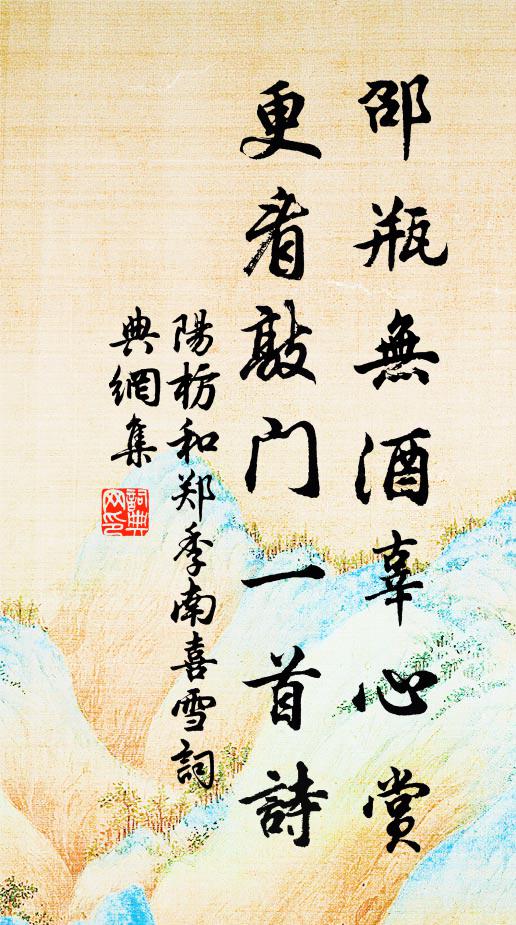 邵瓶無酒辜心赏
更看敲门一首詩
陽枋和郑季南喜雪詞
典網集
詞典
网印